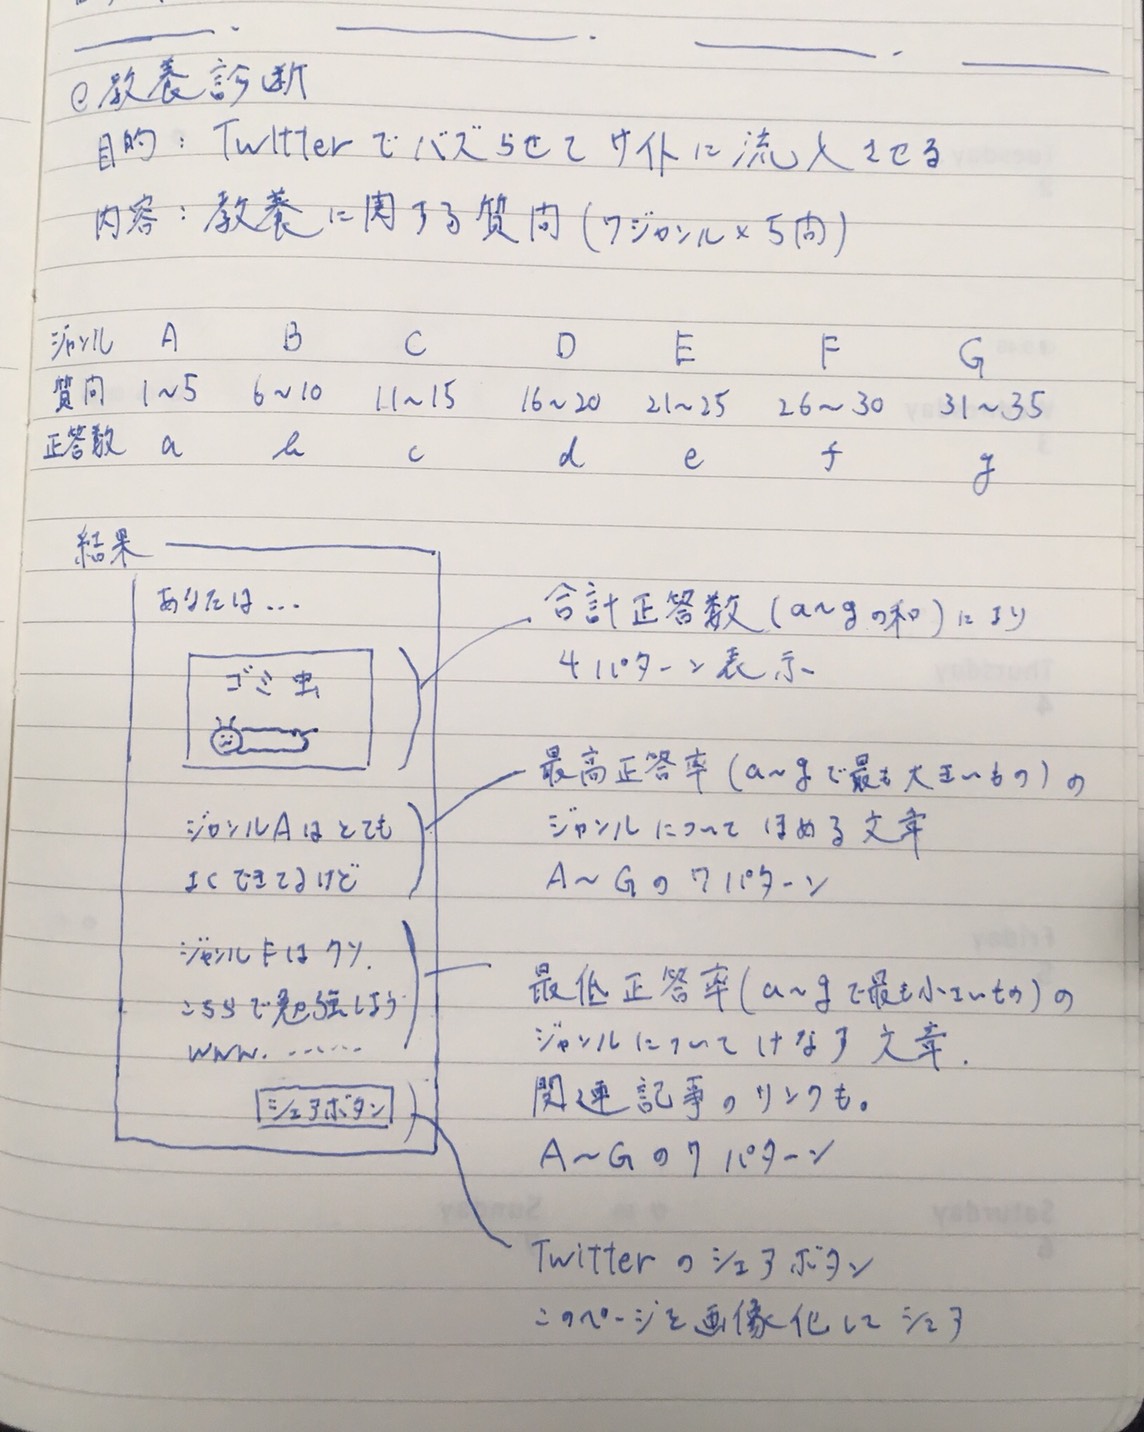 教養診断
目的：Twitterでバズらせてサイトに流入させる
内容：教養に関する質問(7ジャンル×5問)
ジャンル A B C D E F G
質問 1~5 6~10 11~15 16~20 21~25 26~30 31~35
正答数 a b c d e f g
結果
あなたは…
ゴミ虫
ジャンルAはとても
よくできてるけど
ジャンルFはクソ.
こちらで勉強しよう
www. ……
シェアボタン
合計正答数(a~gの和)により
4パターン表示
最高正答率(a~gで最も大きいもの)の
ジャンルについてほめる文章
A~Gの7パターン
最低正答率(a~gで最も小さいもの)の
ジャンルについてけなす文章.
関連記事のリンクも。
A~Gの7パターン
Twitterのシェアボタン
このページを画像化してシェア